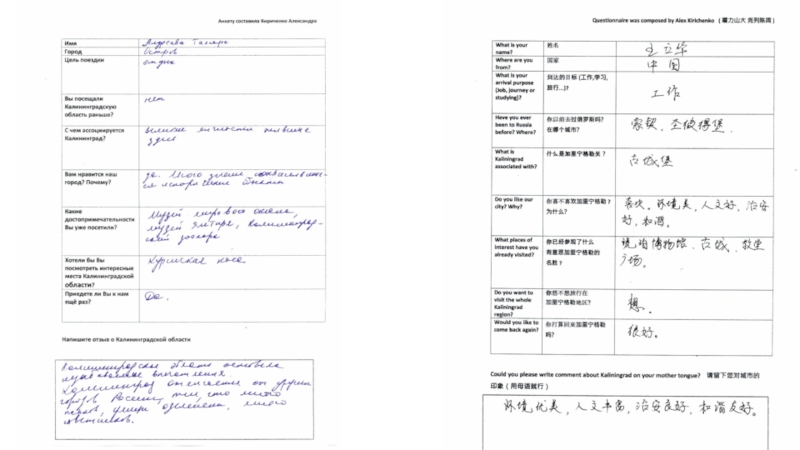 Анкету составила Кириченко Александра
Имя
Город Остров
Цель поездки отдых
Вы посещали
Калининградскую
область раньше?
нет
С чем ассоциируется
Калининград?
великие личности
здесь
Вам нравится наш
город? Почему?
да. Много
Какие
достопримечательности
Вы уже посетили?
Музей мирового океана,
музей янтаря, калининград-
ский зоопарк
Хотели бы Вы
посмотреть интересные
места Калининградской
области?
Куршская коса
Приедете ли Вы к нам
ещё раз?
Да.
Напишите отзыв о Калининградской области
Калининградская область оставила
впечатления
Калининград отличается от других
городов России, тем, что много
парков, много
Questionnaire was composed by Alex Kirichenko
What is your
name?
姓名
王立华
Where are you
from?
国家
中国
What is your
arrival purpose
(Job, journey or
studying)?
到达的目标 (工作,学习,
旅行...)?
工作
Have you ever
been to Russia
before? Where?
你以前去过俄罗斯吗?
在哪个城市?
圣彼得堡.
What is
Kaliningrad
associated with?
什么是加里宁格勒关?
古城堡
Do you like our
city? Why?
你喜不喜欢加里宁格勒?
为什么?
喜欢. 环境美, 人文好, 治安
好, 和谐.
What places of
interest have you
already visited?
你已经参观了什么
有意思加里宁格勒的
名胜?
琥珀博物馆、古城、
广场。
Do you want to
visit the whole
Kaliningrad
region?
你想不想旅行在
加里宁格勒地区?
想.
Would you like to
come back again?
你打算回来加里宁格勒
吗?
很好。
Could you please write comment about Kaliningrad on your mother tongue? 请留下您对城市的
印象 (用母语就行)
环境优美, 人文丰富, 治安良好, 和谐友好。